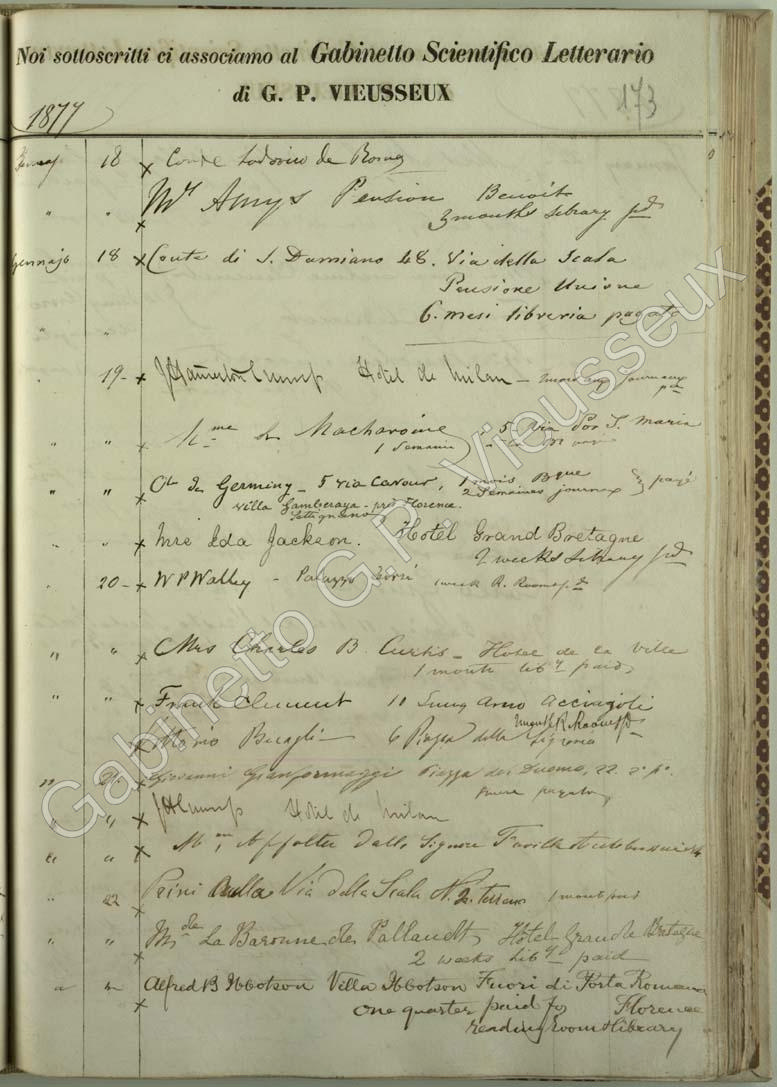 Noi sottoscritti ci associamo al Gabinetto Scientifico Letterario
di G. P. VIEUSSEUX
1877
173
18 x Conte Lodovico de
" " x Mrs Amys Pension Benoit
3 months Library pd
Gennajo 18 x Conte di S. Damiano 48. Via della Scala
Pensione Unione
6. mesi libreria pagato
" "
" 19- x J Hamerton Crump Hotel de Milan - journaux
pd
" " x Mme de 5 Via Por S. Maria
1 Semaine
" " x Cte de Germiny - 5 via Cavour, 1 mois Bque
2 Semaines journaux payé
Villa Gamberaya - près Florence.
Settignano
" " x Mrs Ida Jackson. Hotel Grand Bretagne
2 weeks Library pd
" 20- x W P Walley - Palazzo 1 week R. Room pd
" " x Mrs Charles B. Curtis - Hotel de la Ville
1 month liby paid
" " x Frank Clement 10 Lung Arno Acciajoli
1 month R. Room pd
x 6 Piazza della Signoria
" 21. x Giovanni Gianformaggi Piazza del Duomo, 22. 2° po.
pagato
" " x J H Crump Hotel de Milan
" " x dalle Signore
" 22 x Via della Scala N. 2. terreno 1 month paid
" " x Mde La Baronne de Pallandt Hôtel Grande Bretagne
2 weeks Liby paid
" " x Alfred B Ibbotson Villa Ibbotson Fuori di Porta Romana
one quarter paid for Florence
reading room & library
Gabinetto G.P. Vieusseux